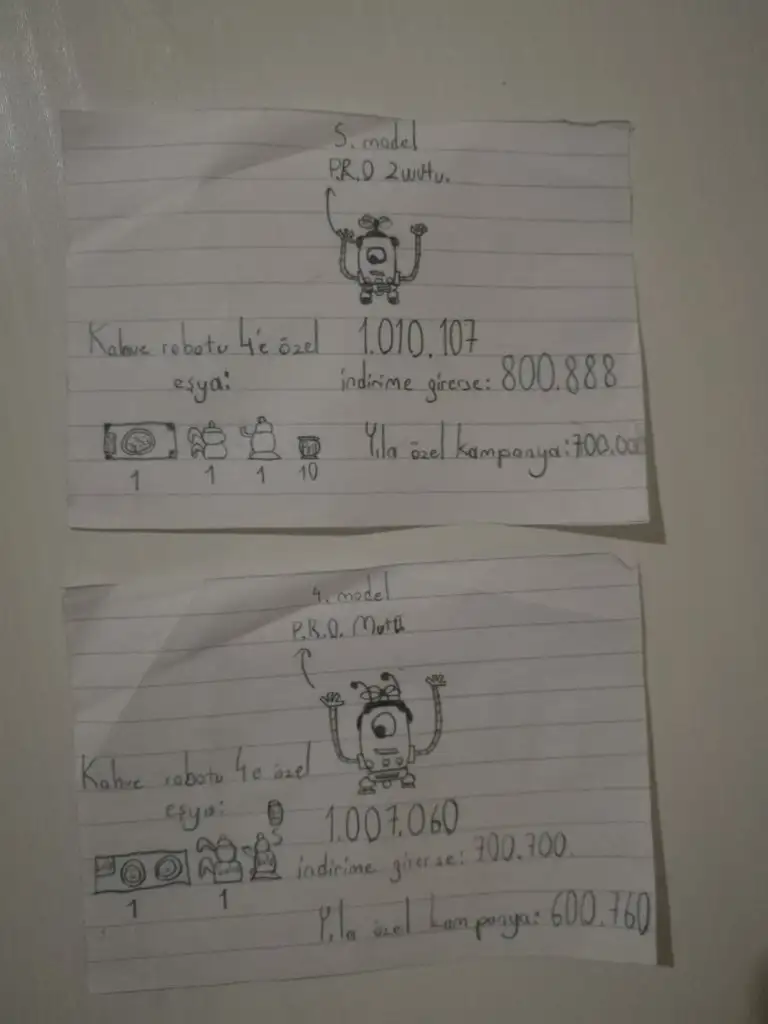 5. model
P.R.O
Kahve robotu 4'e özel
eşya:
1.010.107
indirime girerse: 800.888
Yıla özel kampanya: 700.000
1 1 1 10
4. model
P.R.O. Mutu
Kahve robotu 4'e özel
eşya:
5
1.007.060
indirime girerse: 700.700.
1 1
Yıla özel kampanya: 600.760